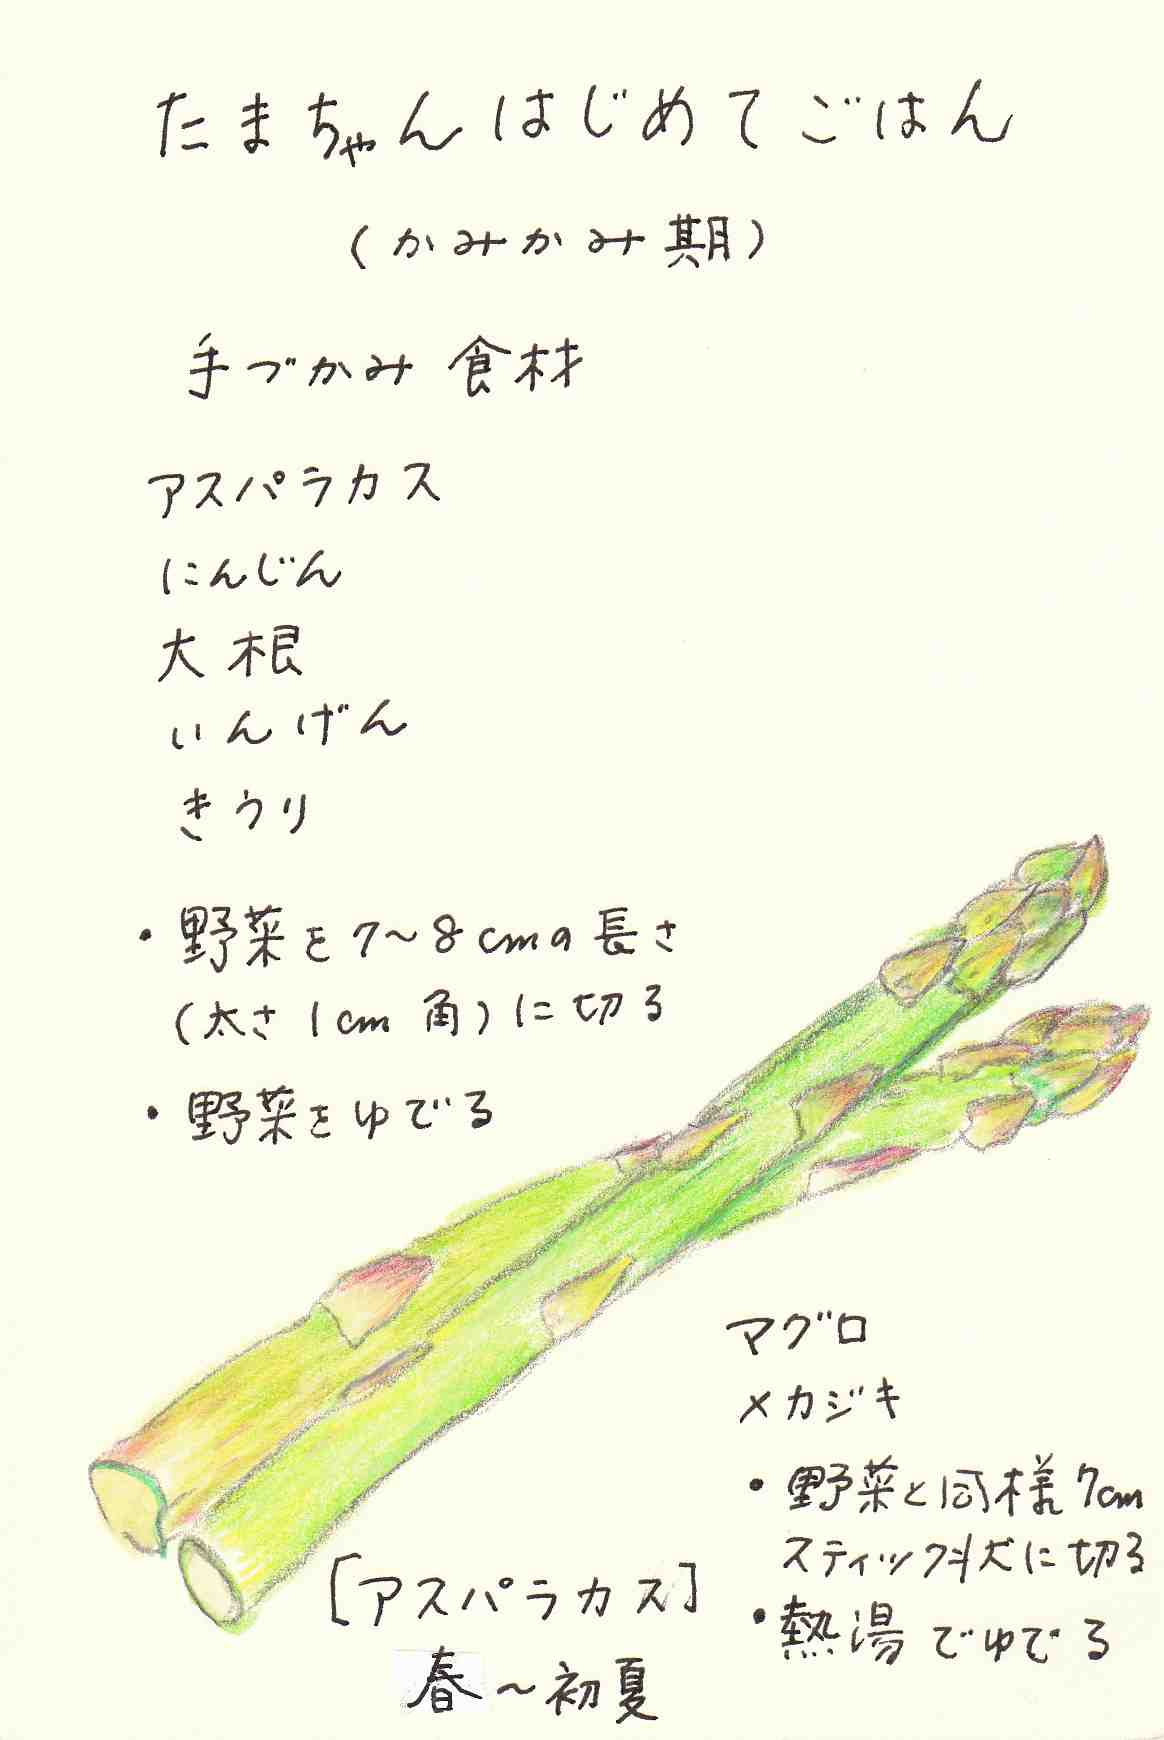 たまちゃんはじめてごはん
(かみかみ期)
手づかみ食材
アスパラカス
にんじん
大根
いんげん
きうり
・野菜を7～8cmの長さ
(太さ1cm角)に切る
・野菜をゆでる
マグロ
メカジキ
・野菜と同様7cm
スティック状に切る
・熱湯でゆでる
[アスパラカス]
春～初夏